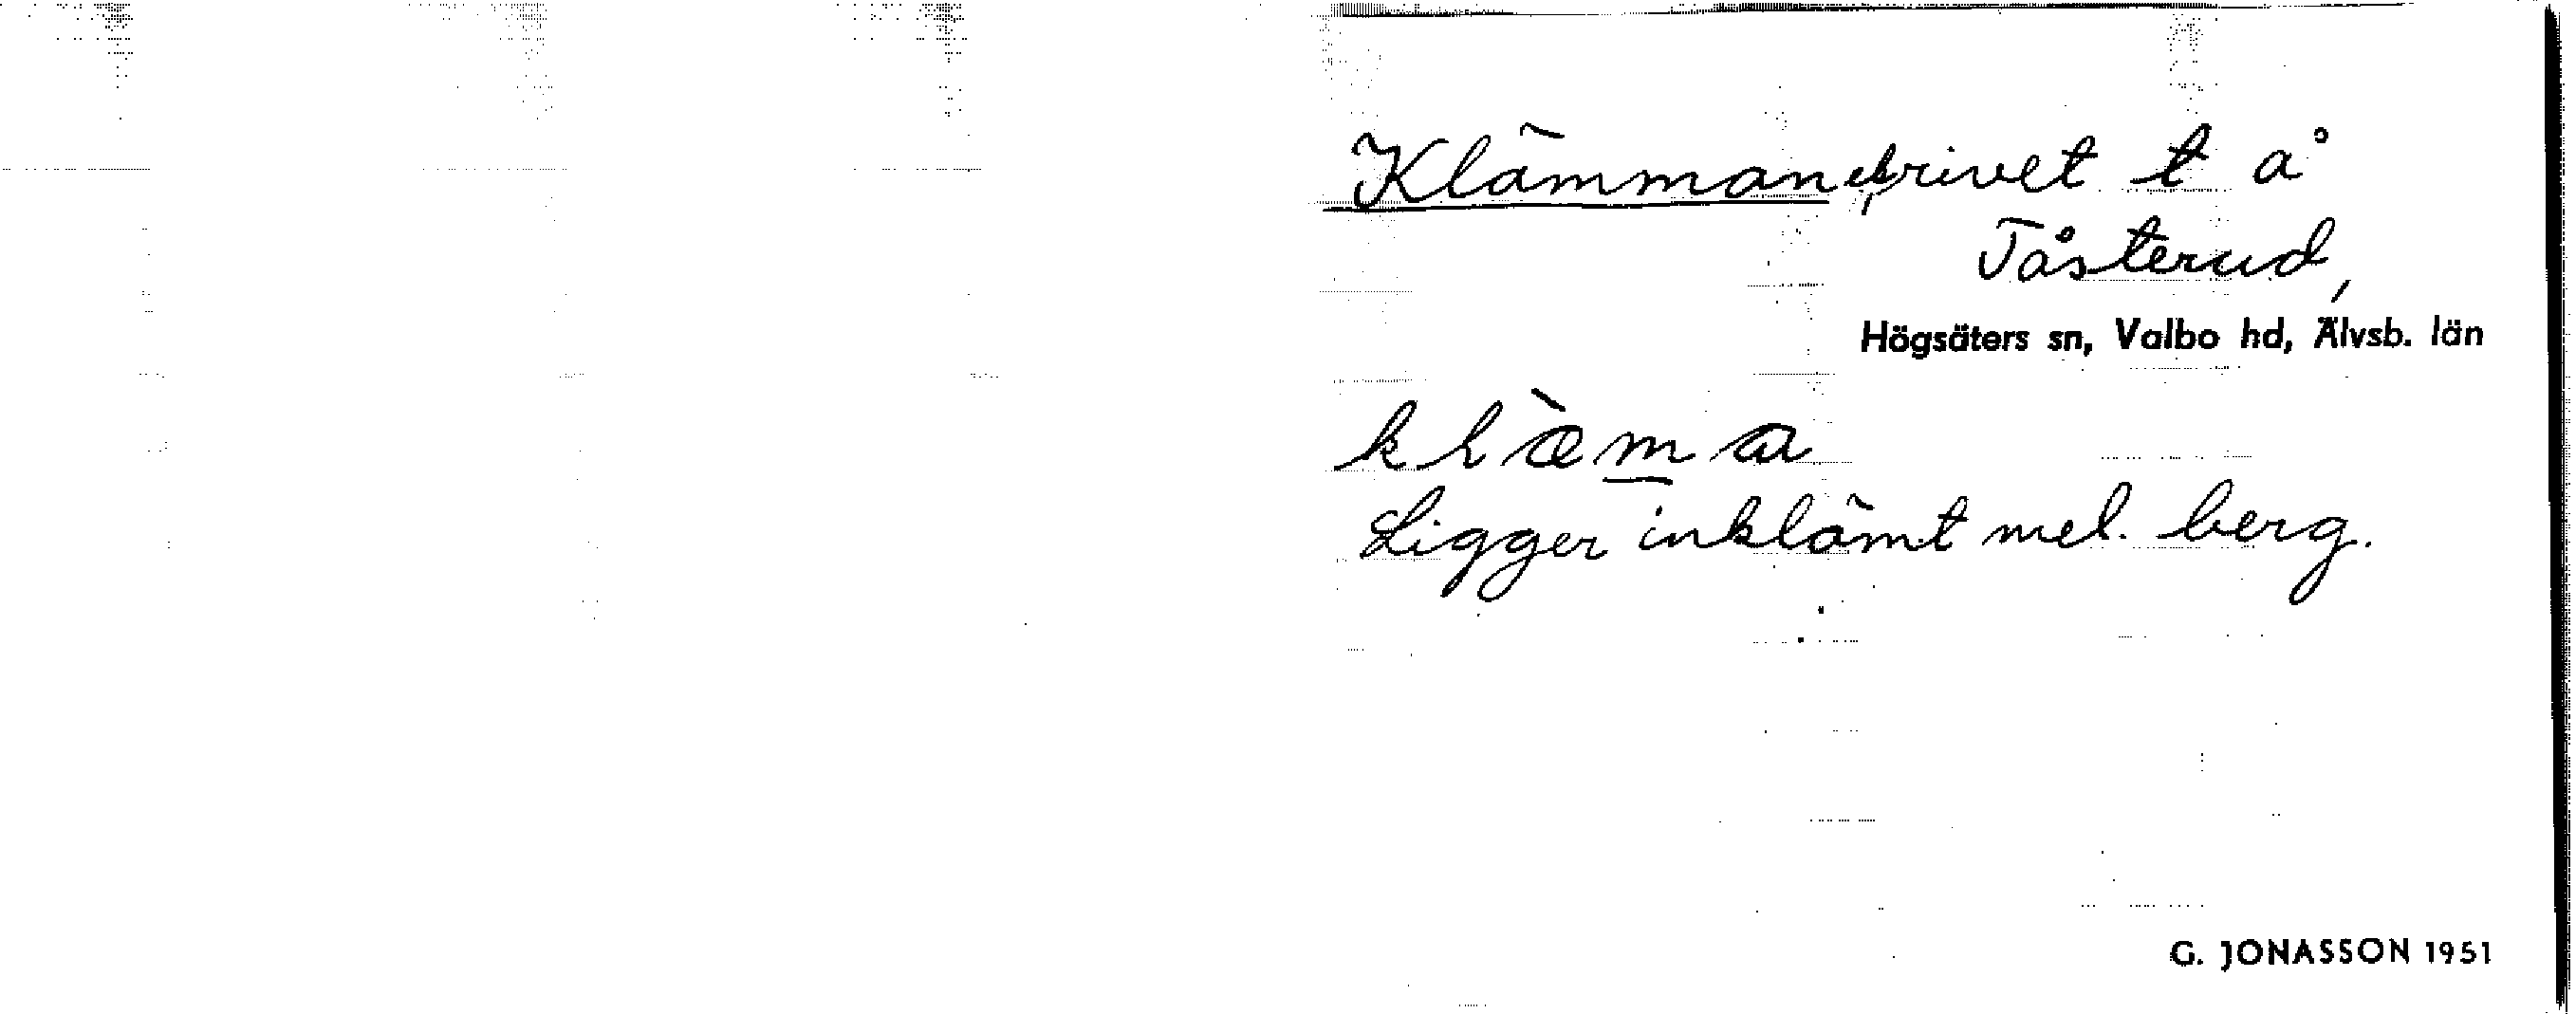 Klämman, rivet t å
Tåsterud,
Högsäters sn, Valbo hd, Älvsb. län
klæ̀ma
Ligger inklämt mel. berg.
G. JONASSON 1951